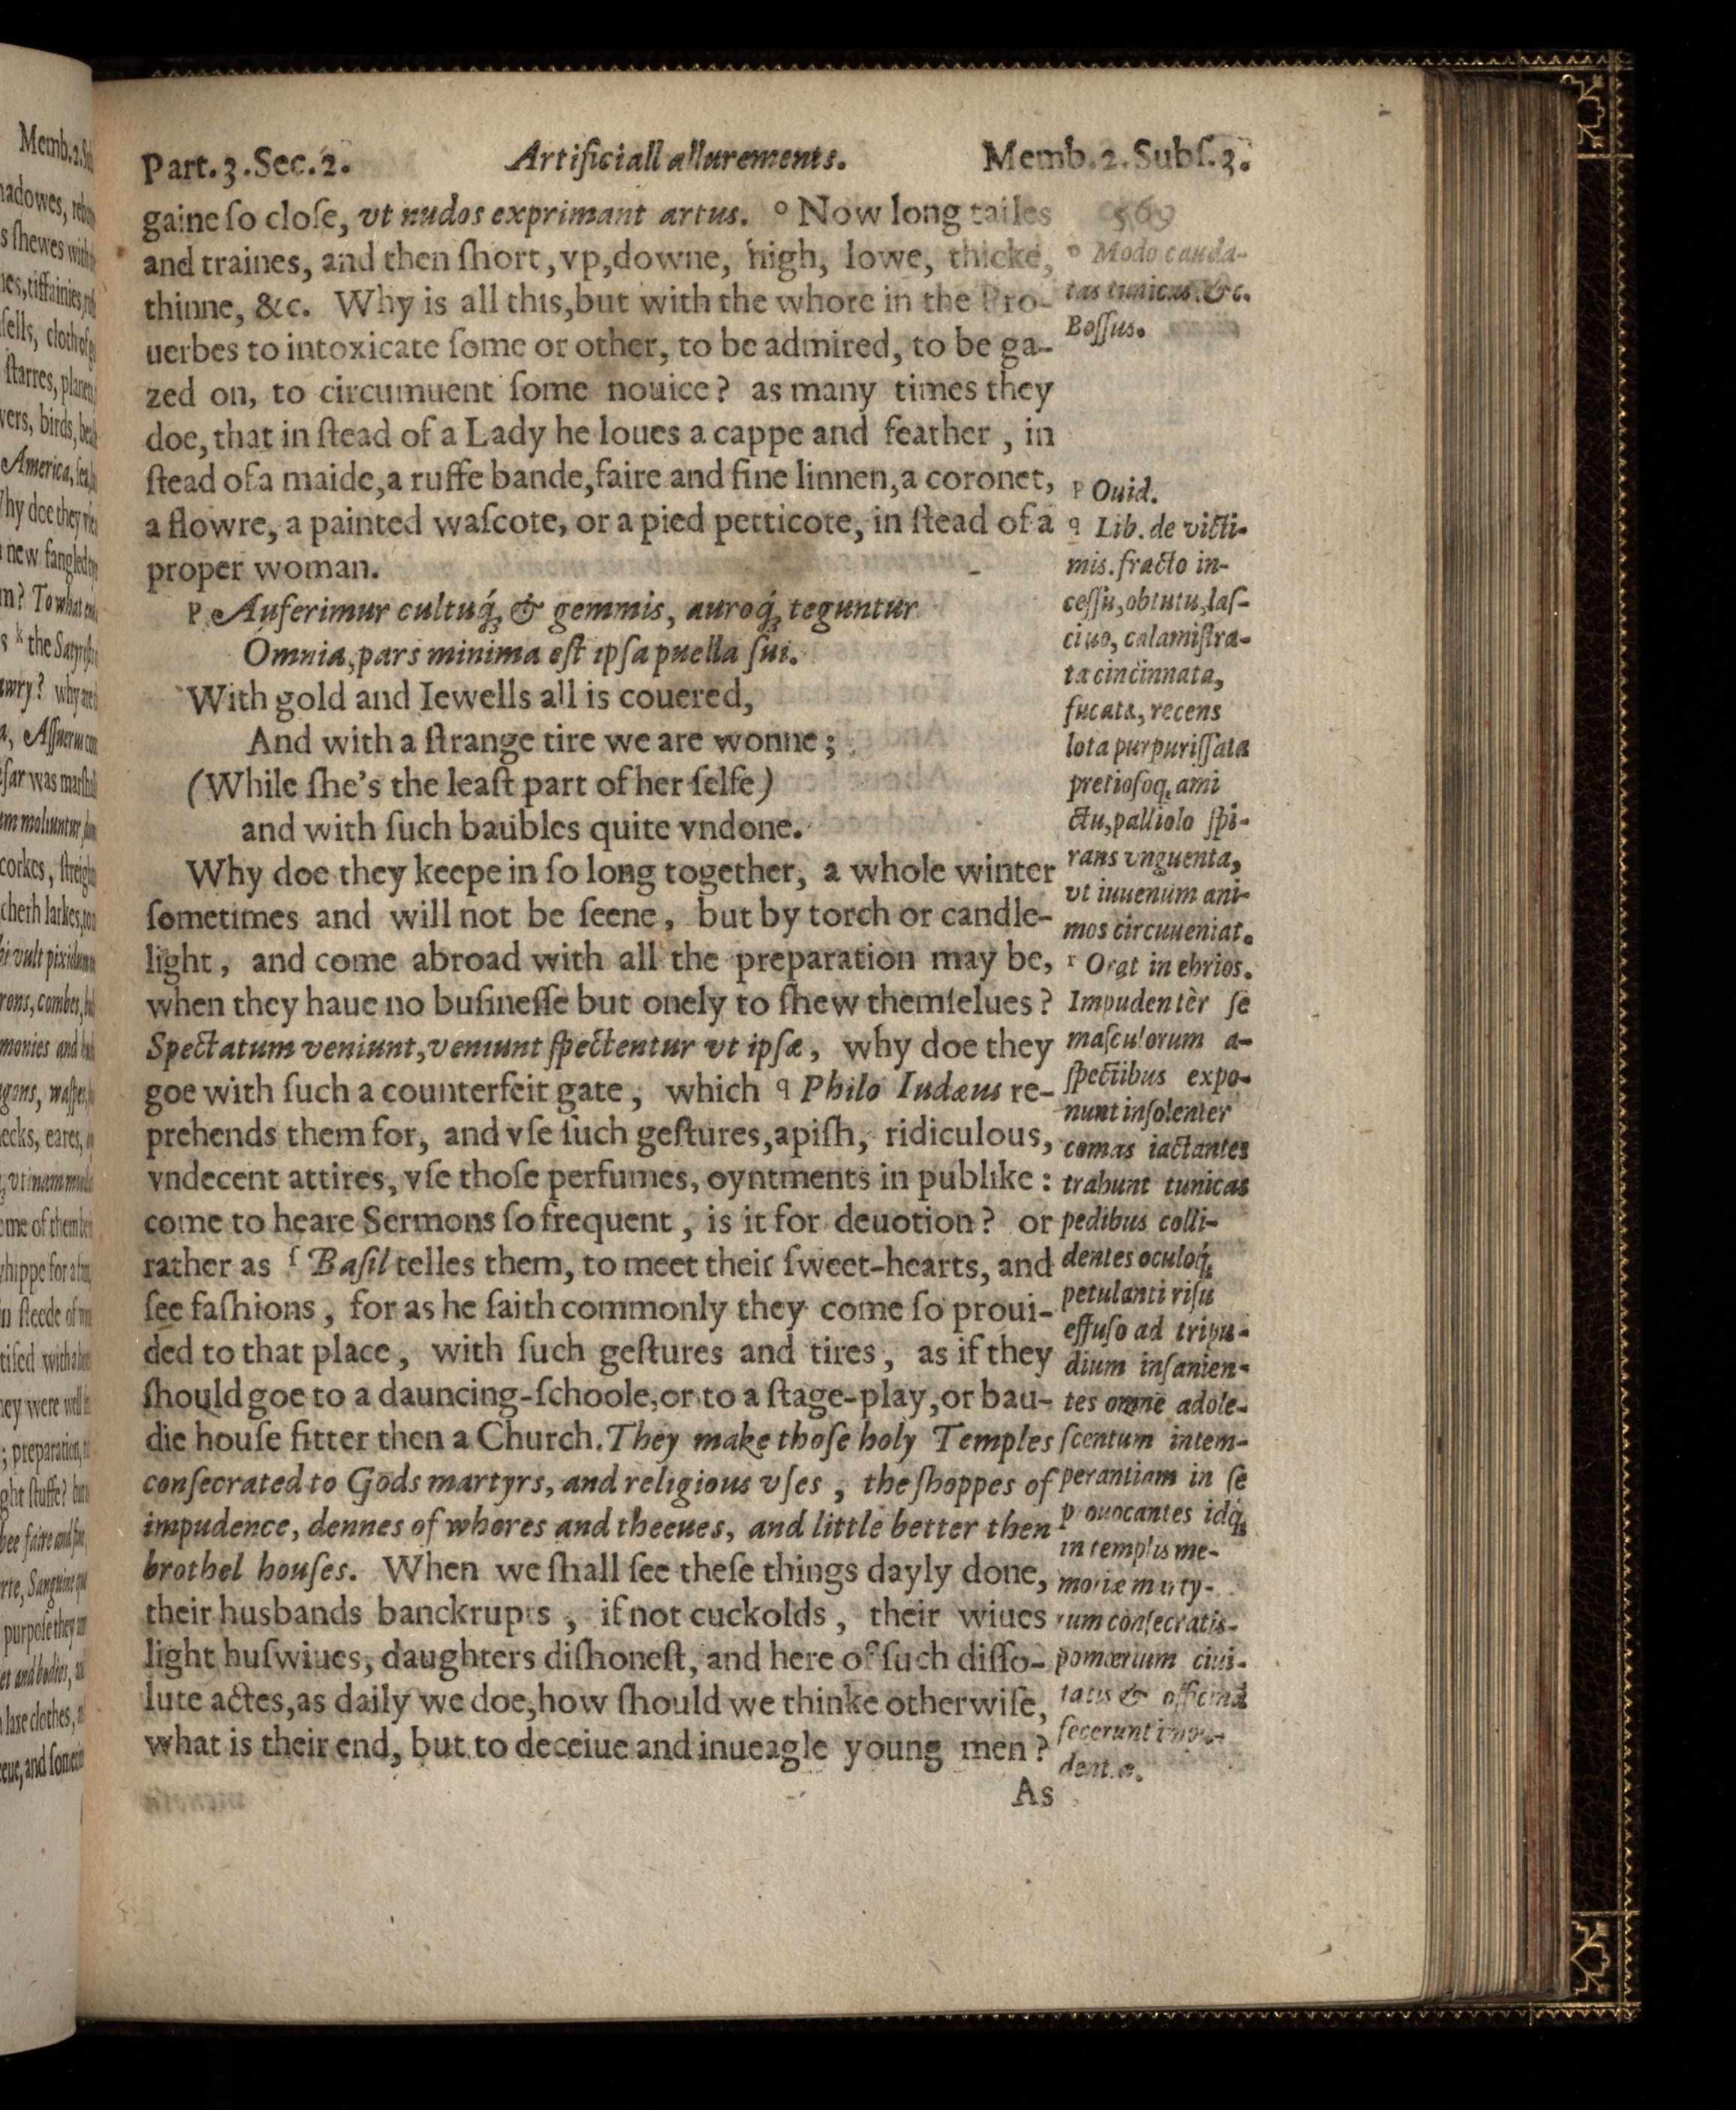 Part.3.Sec.2. Artificiall allurements. Memb.2.Subſ.3.
569
gaine ſo cloſe, vt nudos exprimant artus. o Now long tailes
and traines, and then ſhort, vp, downe, high, lowe, thicke,
thinne, &c. Why is all this, but with the whore in the Pro-
uerbes to intoxicate ſome or other, to be admired, to be ga-
zed on, to circumuent ſome nouice? as many times they
doe, that in ſtead of a Lady he loues a cappe and feather, in
ſtead of a maide, a ruffe bande, faire and fine linnen, a coronet,
a flowre, a painted waſcote, or a pied petticote, in ſtead of a
proper woman.
p Auferimur cultuq́, & gemmis, auroq́, teguntur
Omnia, pars minima eſt ipſa puella ſui.
With gold and Iewells all is couered,
And with a ſtrange tire we are wonne;
(While ſhe's the leaſt part of her ſelfe)
and with ſuch baubles quite vndone.
Why doe they keepe in ſo long together, a whole winter
ſometimes and will not be ſeene, but by torch or candle-
light, and come abroad with all the preparation may be,
when they haue no buſineſſe but onely to ſhew themſelues?
Spectatum veniunt, veniunt ſpectentur vt ipſæ, why doe they
goe with ſuch a counterfeit gate, which q Philo Iudæus re-
prehends them for, and vſe ſuch geſtures, apiſh, ridiculous,
vndecent attires, vſe thoſe perfumes, oyntments in publike:
come to heare Sermons ſo frequent, is it for deuotion? or
rather as ſ Baſil telles them, to meet their ſweet-hearts, and
ſee faſhions, for as he ſaith commonly they come ſo proui-
ded to that place, with ſuch geſtures and tires, as if they
ſhould goe to a dauncing-ſchoole, or to a ſtage-play, or bau-
die houſe fitter then a Church. They make thoſe holy Temples
conſecrated to Gods martyrs, and religious vſes, the ſhoppes of
impudence, dennes of whores and theeues, and little better then
brothel houſes. When we ſhall ſee theſe things dayly done,
their husbands banckrupts, if not cuckolds, their wiues
light huſwiues, daughters diſhoneſt, and here of ſuch diſſo-
lute actes, as daily we doe, how ſhould we thinke otherwiſe,
what is their end, but to deceiue and inueagle young men?
As
o Modo cauda-
tas tunicas. &c.
Boſſus.
p Ouid.
q Lib. de victi-
mis. fracto in-
ceſſu, obtutu, laſ-
ciuo, calamiſtra-
ta cincinnata,
fucata, recens
lota purpuriſſata
pretioſoq, ami
ctu, palliolo ſpi-
rans vnguenta,
vt iuuenum ani-
mos circuueniat.
r Orat in ebrios.
Impudentèr ſe
maſculorum a-
ſpectibus expo-
nunt inſolenter
comas iactantes
trahunt tunicas
pedibus colli-
dentes oculoq́,
petulanti riſu
effuſo ad tripu-
dium inſanien-
tes omne adole-
ſcentum intem-
perantiam in ſe
prouocantes idq́,
in templis me-
moriæ marty-
rum conſecratis
pomœrium ciui-
tatis & officinā
fecerunt impu-
dentiæ.